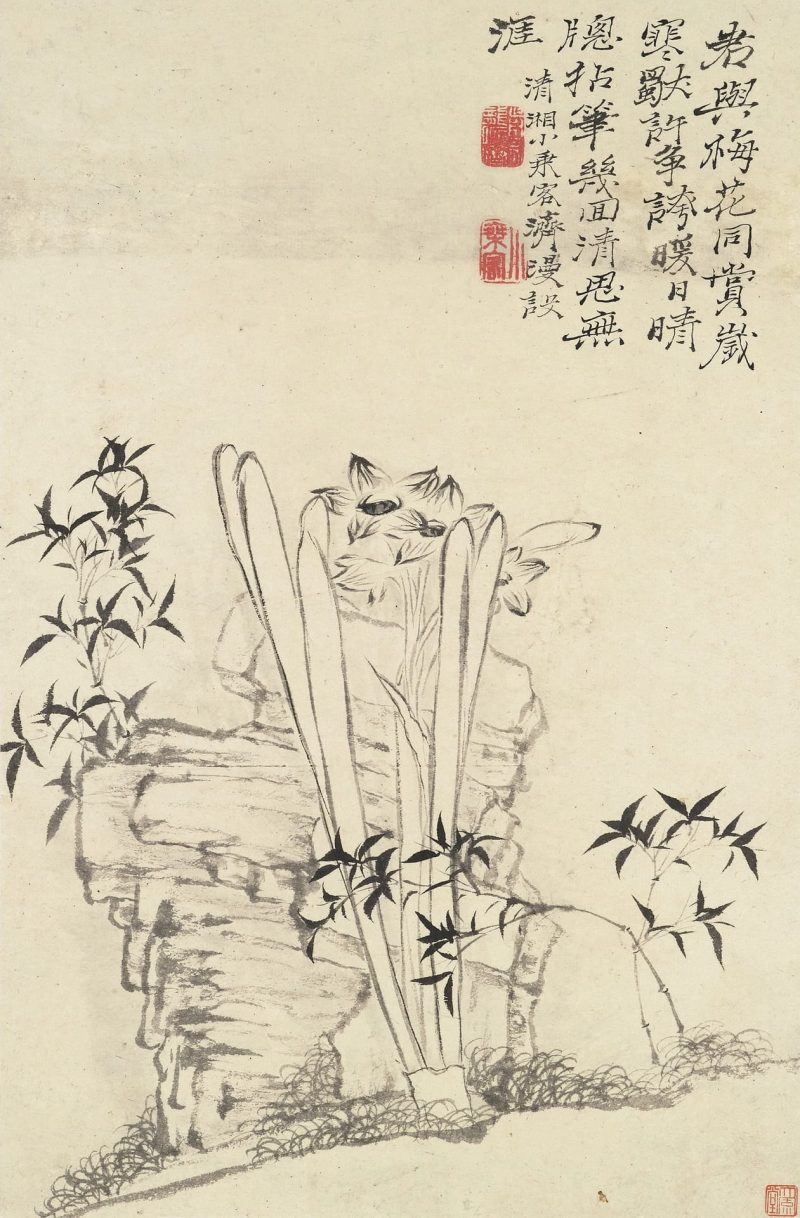 君與梅花同賞歲
寒獸許爭誇暖日晴
窻拈筆幾回清思無
涯
清湘小乘客濟漫設
小乘客